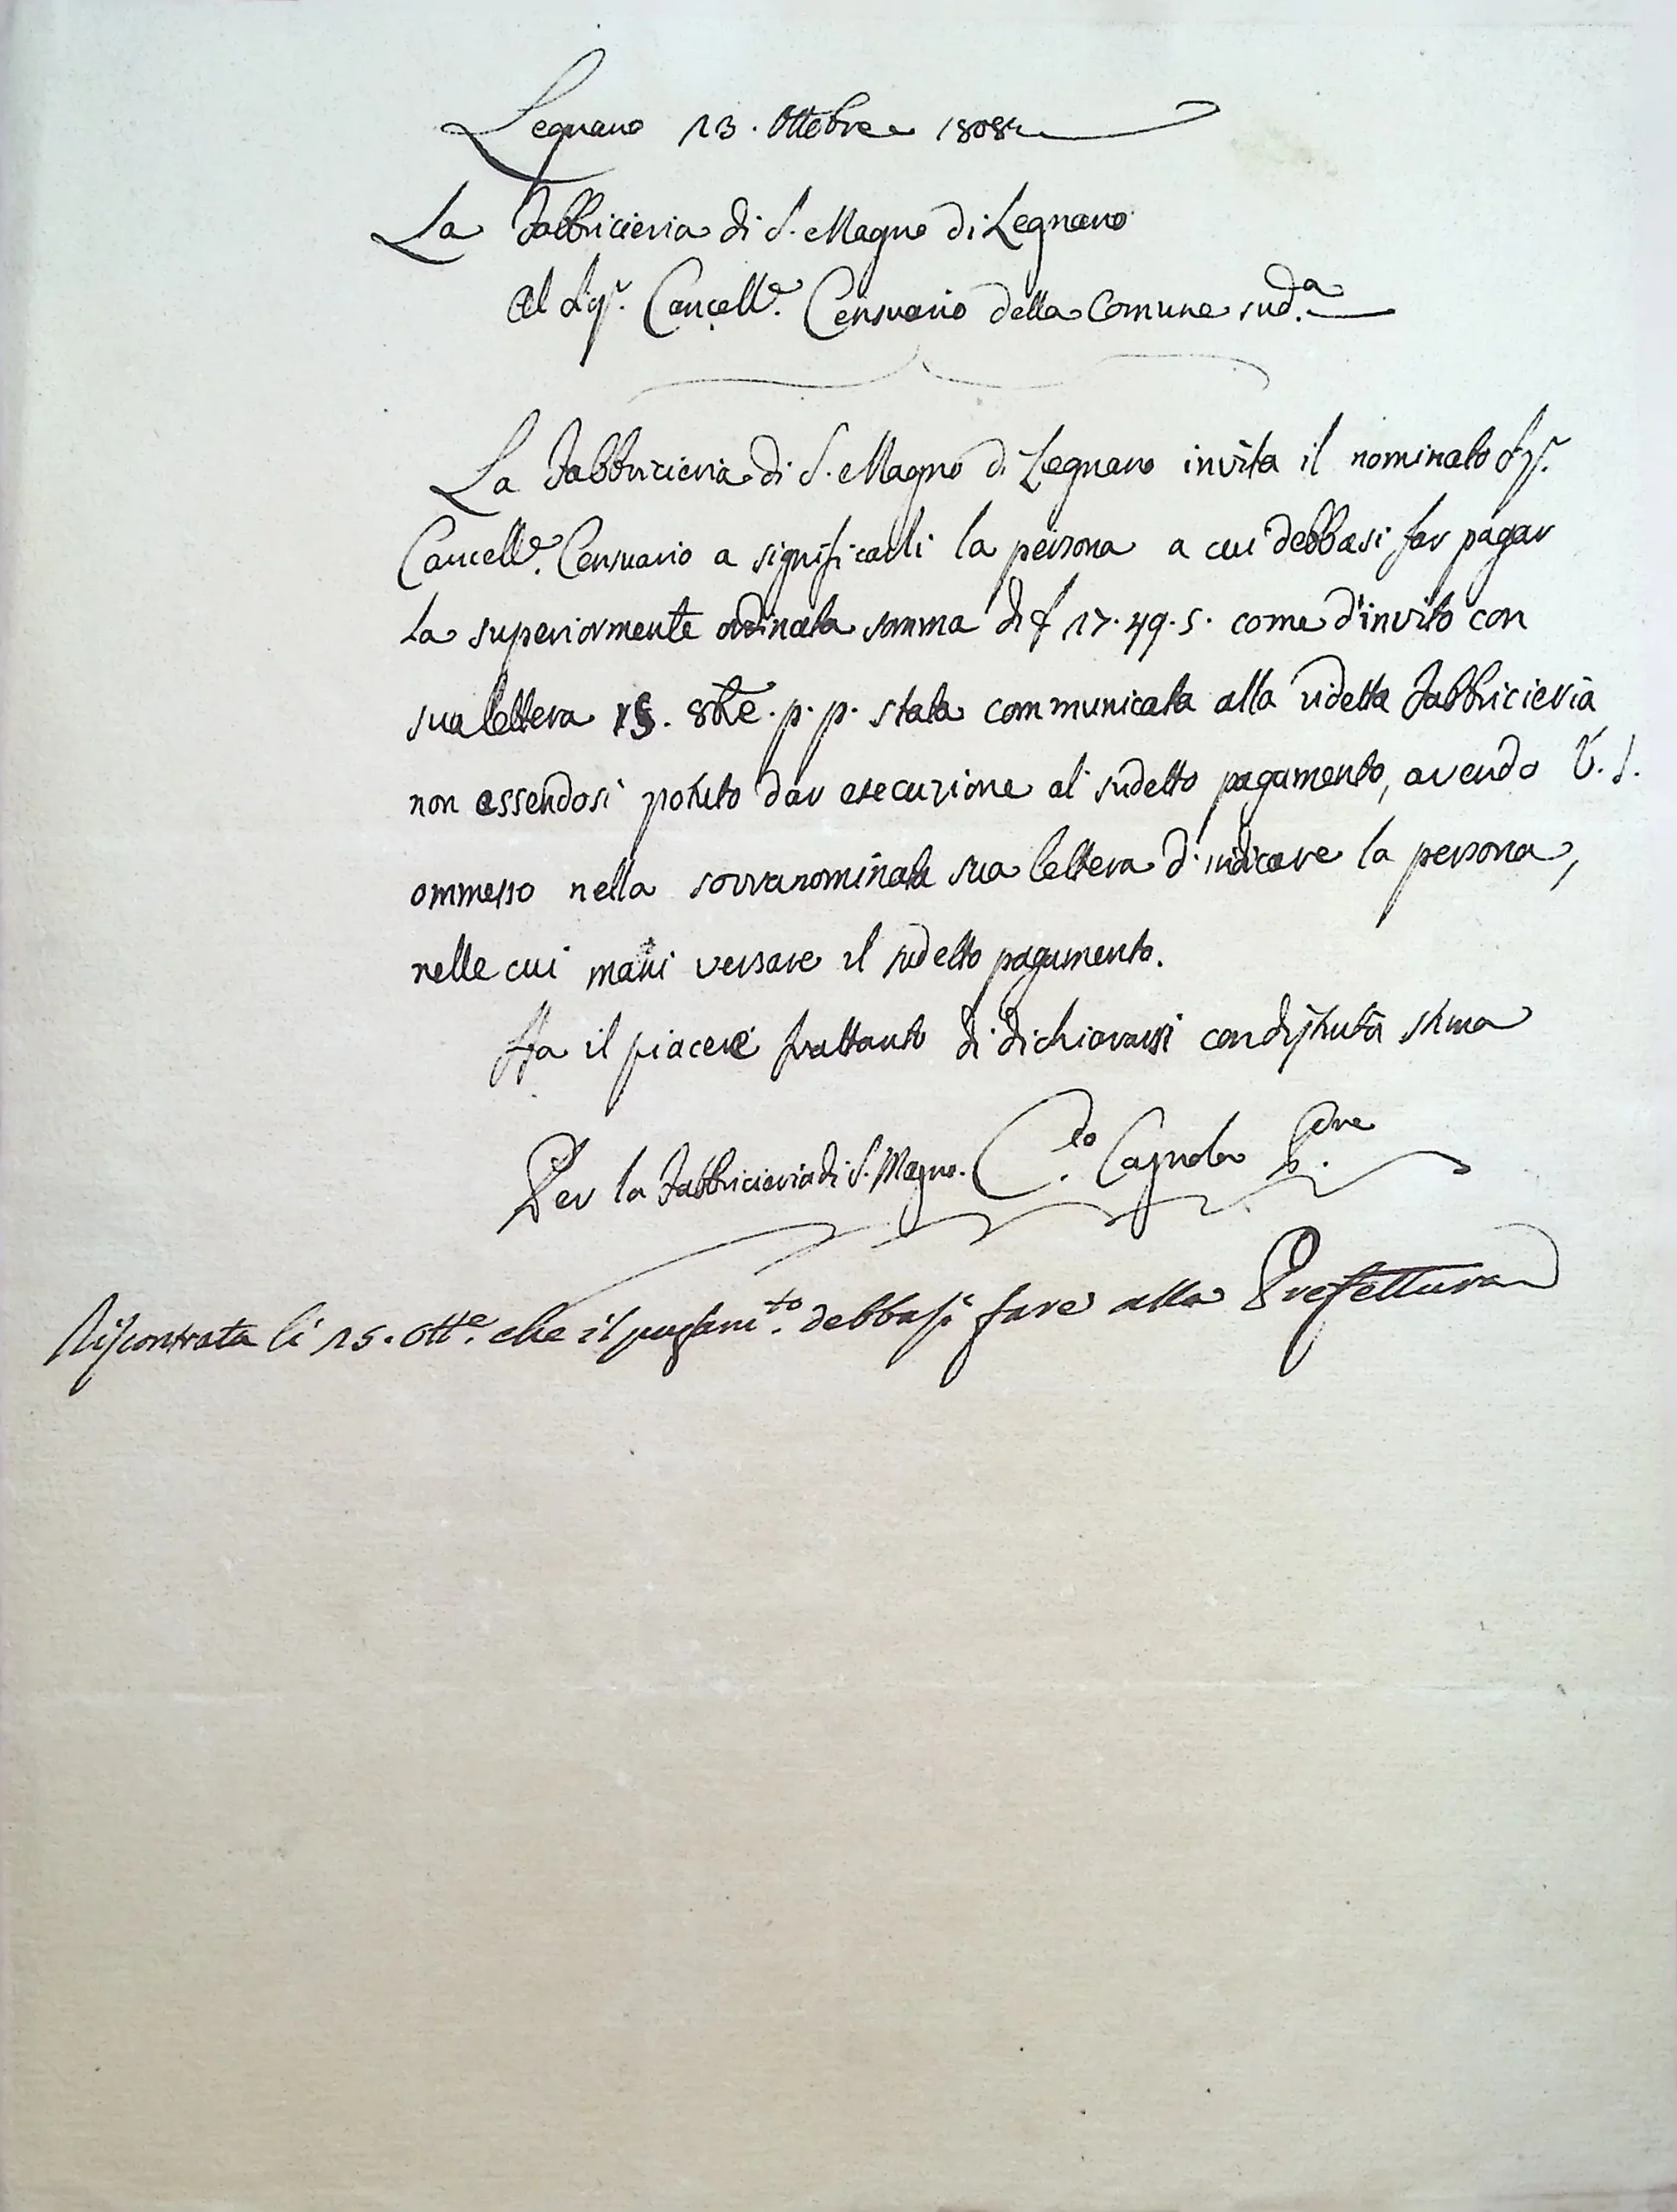 Legnano 13. Ottobre 1808
La Fabbricieria di S. Magno di Legnano
Al Sigr. Cancelle. Censuario della Comune suda.
La Fabbricieria di S. Magno di Legnano invita il nominato Sigr.
Cancelle. Censuario a significarli la persona a cui debbasi far pagar
la superiormente ordinata somma di £ 17.49.5. come d'invito con
sua lettera 8bre. p. p. stata communicata alla ridetta Fabbricieria
non essendosi potuto dar esecuzione al sudetto pagamento, avendo V. S.
ommesso nella sovranominata sua lettera d'indicare la persona,
nelle cui mani versare il sudetto pagamento.
Ha il piacere frattanto di dichiararsi con distinta stima
Per la Fabbricieria di S. Magno. Cagnola
Riscontrata li 15. Otte. che il pagamto. debbasi fare alla Prefettura